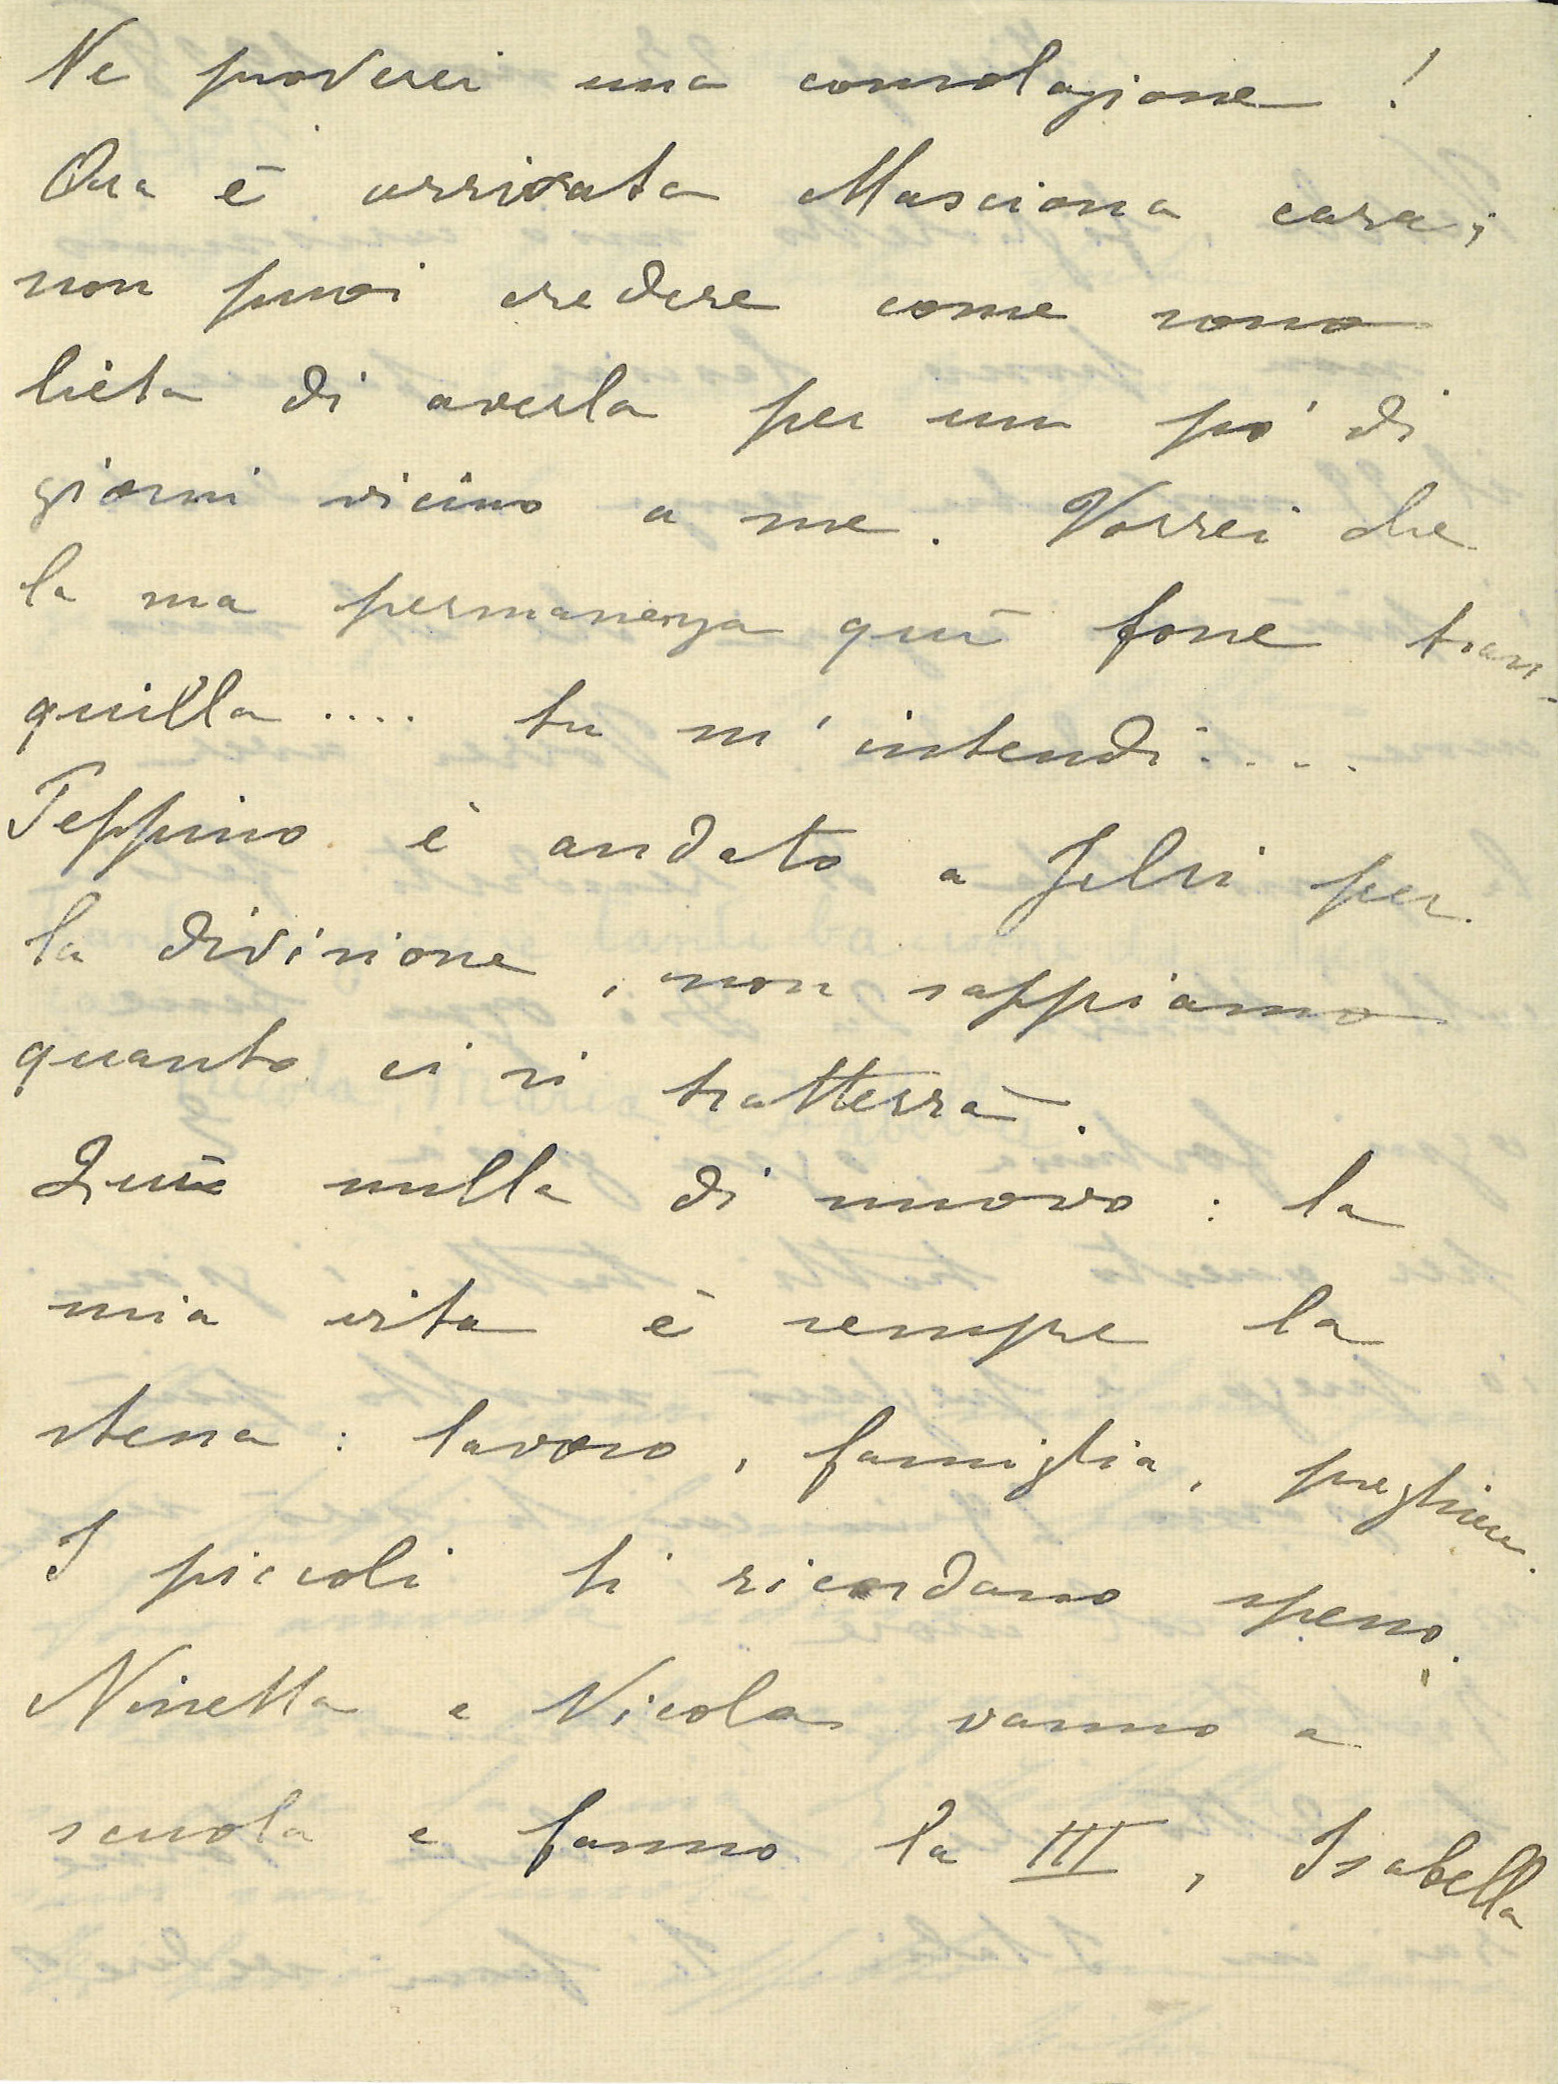 Ne proverei una consolazione !
Ora è arrivata Masciona cara;
non puoi credere come sono
lieta di averla per un po' di
giorni vicino a me. Vorrei che
la sua permanenza quì fosse tran-
quilla .... tu m'intendi ....
Peppino è andato a Jelsi per
la divisione, non sappiamo
quanto ci si tratterrà.
Quì nulla di nuovo : la
mia vita è sempre la
stessa : lavoro, famiglia, preghiere.
I piccoli ti ricordano spesso.
Ninetta e Nicola vanno a
scuola e fanno la III, Isabella